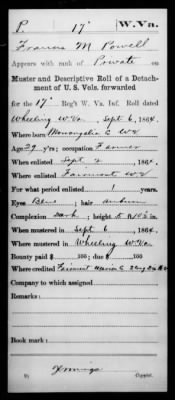 P. 17' W. Va.
Francis M Powell
Appears with rank of Private on
Muster and Descriptive Roll of a Detach-
ment of U. S. Vols. forwarded
for the 17' Reg't W. Va. Inf. Roll dated
Wheeling W Va Sept 6, 1864.
Where born Monongalia C W V
Age 29 y'rs; occupation Farmer
When enlisted Sept 2, 1864.
Where enlisted Fairmont W V
For what period enlisted 1 years.
Eyes Blue; hair auburn
Complexion Dark; height 5 ft. 10½ in.
When mustered in Sept 6, 1864.
Where mustered in Wheeling W Va
Bounty paid $ 100; due $ 100
Where credited Fairmont Marion C
Company to which assigned
Remarks:
Book mark:
Copyist.